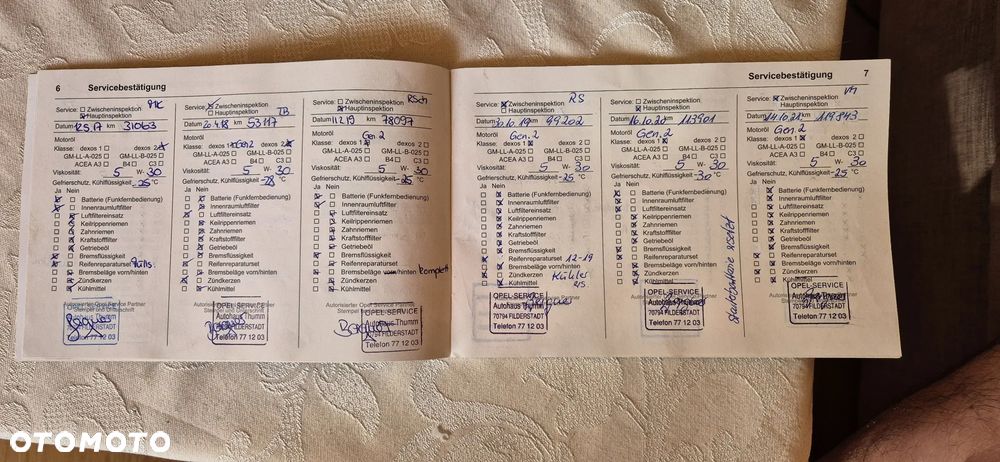 6 Servicebestätigung
Service: Zwischeninspektion
Hauptinspektion
Datum 12.5.17 km 31063
Motoröl
Klasse: dexos 1 dexos 2
GM-LL-A-025 GM-LL-B-025
ACEA A3 B4 C3
Viskosität: 5 W- 30
Gefrierschutz, Kühlflüssigkeit -25 °C
Ja Nein
Batterie (Funkfernbedienung)
Innenraumluftfilter
Luftfiltereinsatz
Keilrippenriemen
Zahnriemen
Kraftstofffilter
Getriebeöl
Bremsflüssigkeit
Reifenreparaturset
Bremsbeläge vorn/hinten
Zündkerzen
Kühlmittel
Autorisierter Opel Service Partner
Stempel und Unterschrift
OPEL-SERVICE
Autohaus Thumm
70794 FILDERSTADT
Telefon 77 12 03
Service: Zwischeninspektion
Hauptinspektion
TB
Datum 20.4.18 km 53117
Motoröl
Klasse: dexos 1 Gen2 dexos 2
GM-LL-A-025 GM-LL-B-025
ACEA A3 B4 C3
Viskosität: 5 W- 30
Gefrierschutz, Kühlflüssigkeit -28 °C
Ja Nein
Batterie (Funkfernbedienung)
Innenraumluftfilter
Luftfiltereinsatz
Keilrippenriemen
Zahnriemen
Kraftstofffilter
Getriebeöl
Bremsflüssigkeit
Reifenreparaturset
Bremsbeläge vorn/hinten
Zündkerzen
Kühlmittel
OPEL-SERVICE
Autohaus Thumm
70794 FILDERSTADT
Telefon 77 12 03
Service: Zwischeninspektion
Hauptinspektion
RSch
Datum 11.2.19 km 78097
Motoröl Gen.2
Klasse: dexos 1 dexos 2
GM-LL-A-025 GM-LL-B-025
ACEA A3 B4 C3
Viskosität: 5 W- 30
Gefrierschutz, Kühlflüssigkeit -25 °C
Ja Nein
Batterie (Funkfernbedienung)
Innenraumluftfilter
Luftfiltereinsatz
Keilrippenriemen
Zahnriemen
Kraftstofffilter
Getriebeöl
Bremsflüssigkeit
Reifenreparaturset
Bremsbeläge vorn/hinten komplett
Zündkerzen
Kühlmittel
Autorisierter Opel Service Partner
OPEL-SERVICE
Autohaus Thumm
70794 FILDERSTADT
Telefon 77 12 03
Servicebestätigung 7
RS
Service: Zwischeninspektion
Hauptinspektion
Datum 30.10.19 km 99202
Motoröl Gen.2
Klasse: dexos 1 dexos 2
GM-LL-A-025 GM-LL-B-025
ACEA A3 B4 C3
Viskosität: 5 W- 30
Gefrierschutz, Kühlflüssigkeit -25 °C
Ja Nein
Batterie (Funkfernbedienung)
Innenraumluftfilter
Luftfiltereinsatz
Keilrippenriemen
Zahnriemen
Kraftstofffilter
Getriebeöl
Bremsflüssigkeit
Reifenreparaturset 12-19
Bremsbeläge vorn/hinten
Zündkerzen Kühler
Kühlmittel
OPEL-SERVICE
Autohaus Thumm
70794 FILDERSTADT
Telefon 77 12 03
Service: Zwischeninspektion
Hauptinspektion
Datum 16.10.20 km 113901
Motoröl Gen.2
Klasse: dexos 1 dexos 2
GM-LL-A-025 GM-LL-B-025
ACEA A3 B4 C3
Viskosität: 5 W- 30
Gefrierschutz, Kühlflüssigkeit -30 °C
Ja Nein
Batterie (Funkfernbedienung)
Innenraumluftfilter
Luftfiltereinsatz
Keilrippenriemen
Zahnriemen
Kraftstofffilter
Getriebeöl
Bremsflüssigkeit
Reifenreparaturset
Bremsbeläge vorn/hinten
Zündkerzen
Kühlmittel
OPEL-SERVICE
Autohaus Thumm
70794 FILDERSTADT
Telefon 77 12 03
Service: Zwischeninspektion
Hauptinspektion
Datum 14.10.21 km 119843
Motoröl Gen.2
Klasse: dexos 1 dexos 2
GM-LL-A-025 GM-LL-B-025
ACEA A3 B4 C3
Viskosität: 5 W- 30
Gefrierschutz, Kühlflüssigkeit -25 °C
Ja Nein
Batterie (Funkfernbedienung)
Innenraumluftfilter
Luftfiltereinsatz
Keilrippenriemen
Zahnriemen
Kraftstofffilter
Getriebeöl
Bremsflüssigkeit
Reifenreparaturset
Bremsbeläge vorn/hinten
Zündkerzen
Kühlmittel
OPEL-SERVICE
Autohaus Thumm
70794 FILDERSTADT
Telefon 77 12 03
OTOMOTO